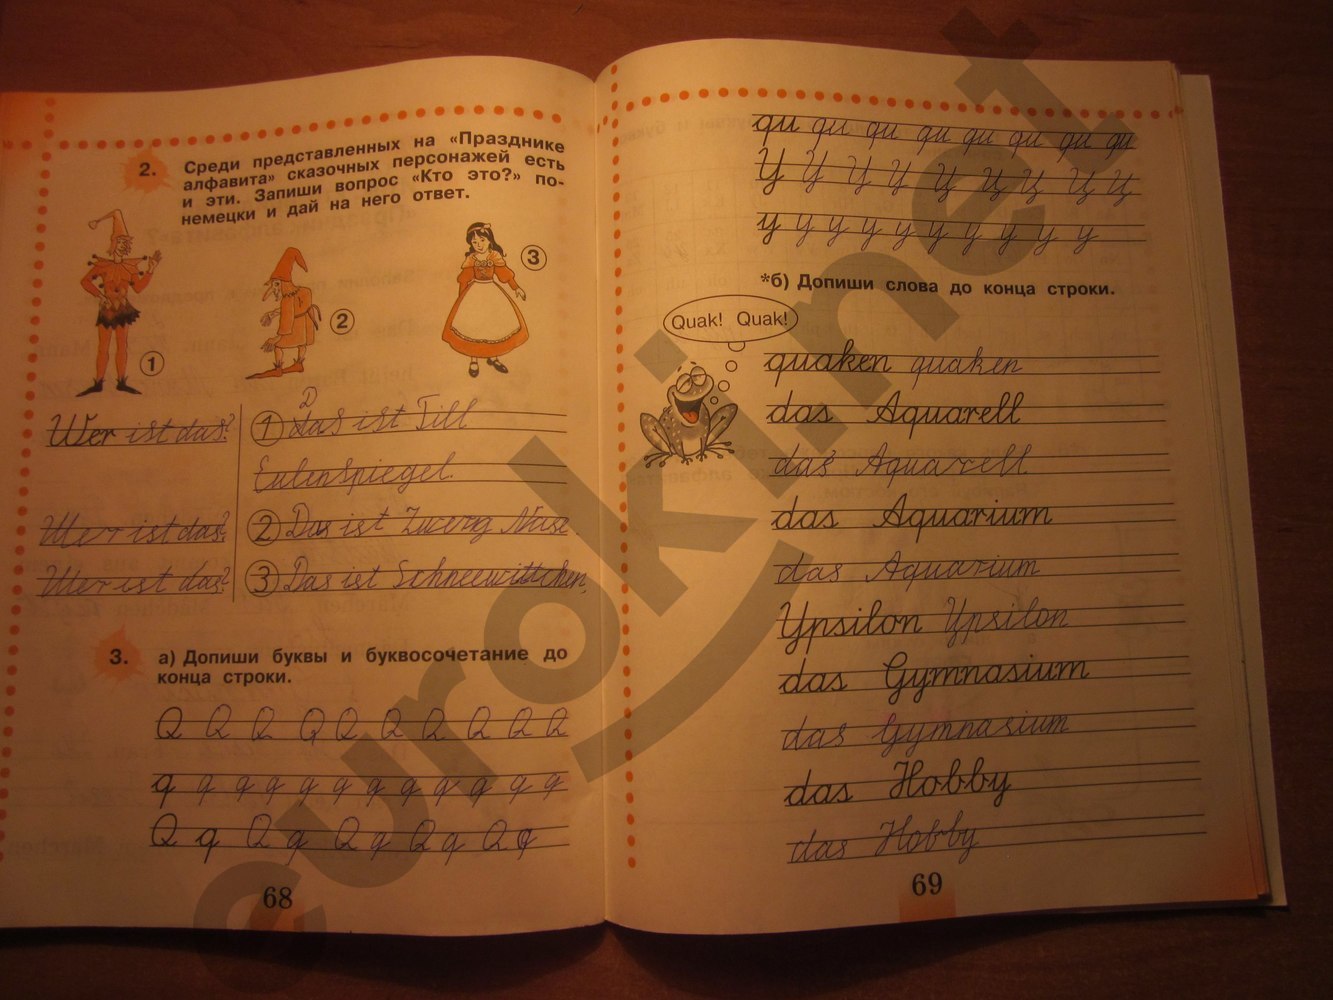 2. Среди представленных на «Празднике
алфавита» сказочных персонажей есть
и эти. Запиши вопрос «Кто это?» по-
немецки и дай на него ответ.
1
2
3
Wer ist das? 1 Das ist Till
Eulenspiegel.
Wer ist das? 2 Das ist Zwerg Nase.
Wer ist das? 3 Das ist Schneewittchen.
3. а) Допиши буквы и буквосочетание до
конца строки.
Q Q Q Q Q Q Q Q Q Q
q q q q q q q q q q q q
Q q Q q Q q Q q Q q
68
qu qu qu qu qu qu qu qu
Y Y Y Y Y Y Y Y Y
y y y y y y y y y y
*б) Допиши слова до конца строки.
Quak! Quak!
quaken quaken
das Aquarell
das Aquarell
das Aquarium
das Aquarium
Ypsilon Ypsilon
das Gymnasium
das Gymnasium
das Hobby
das Hobby
69
eurokinet